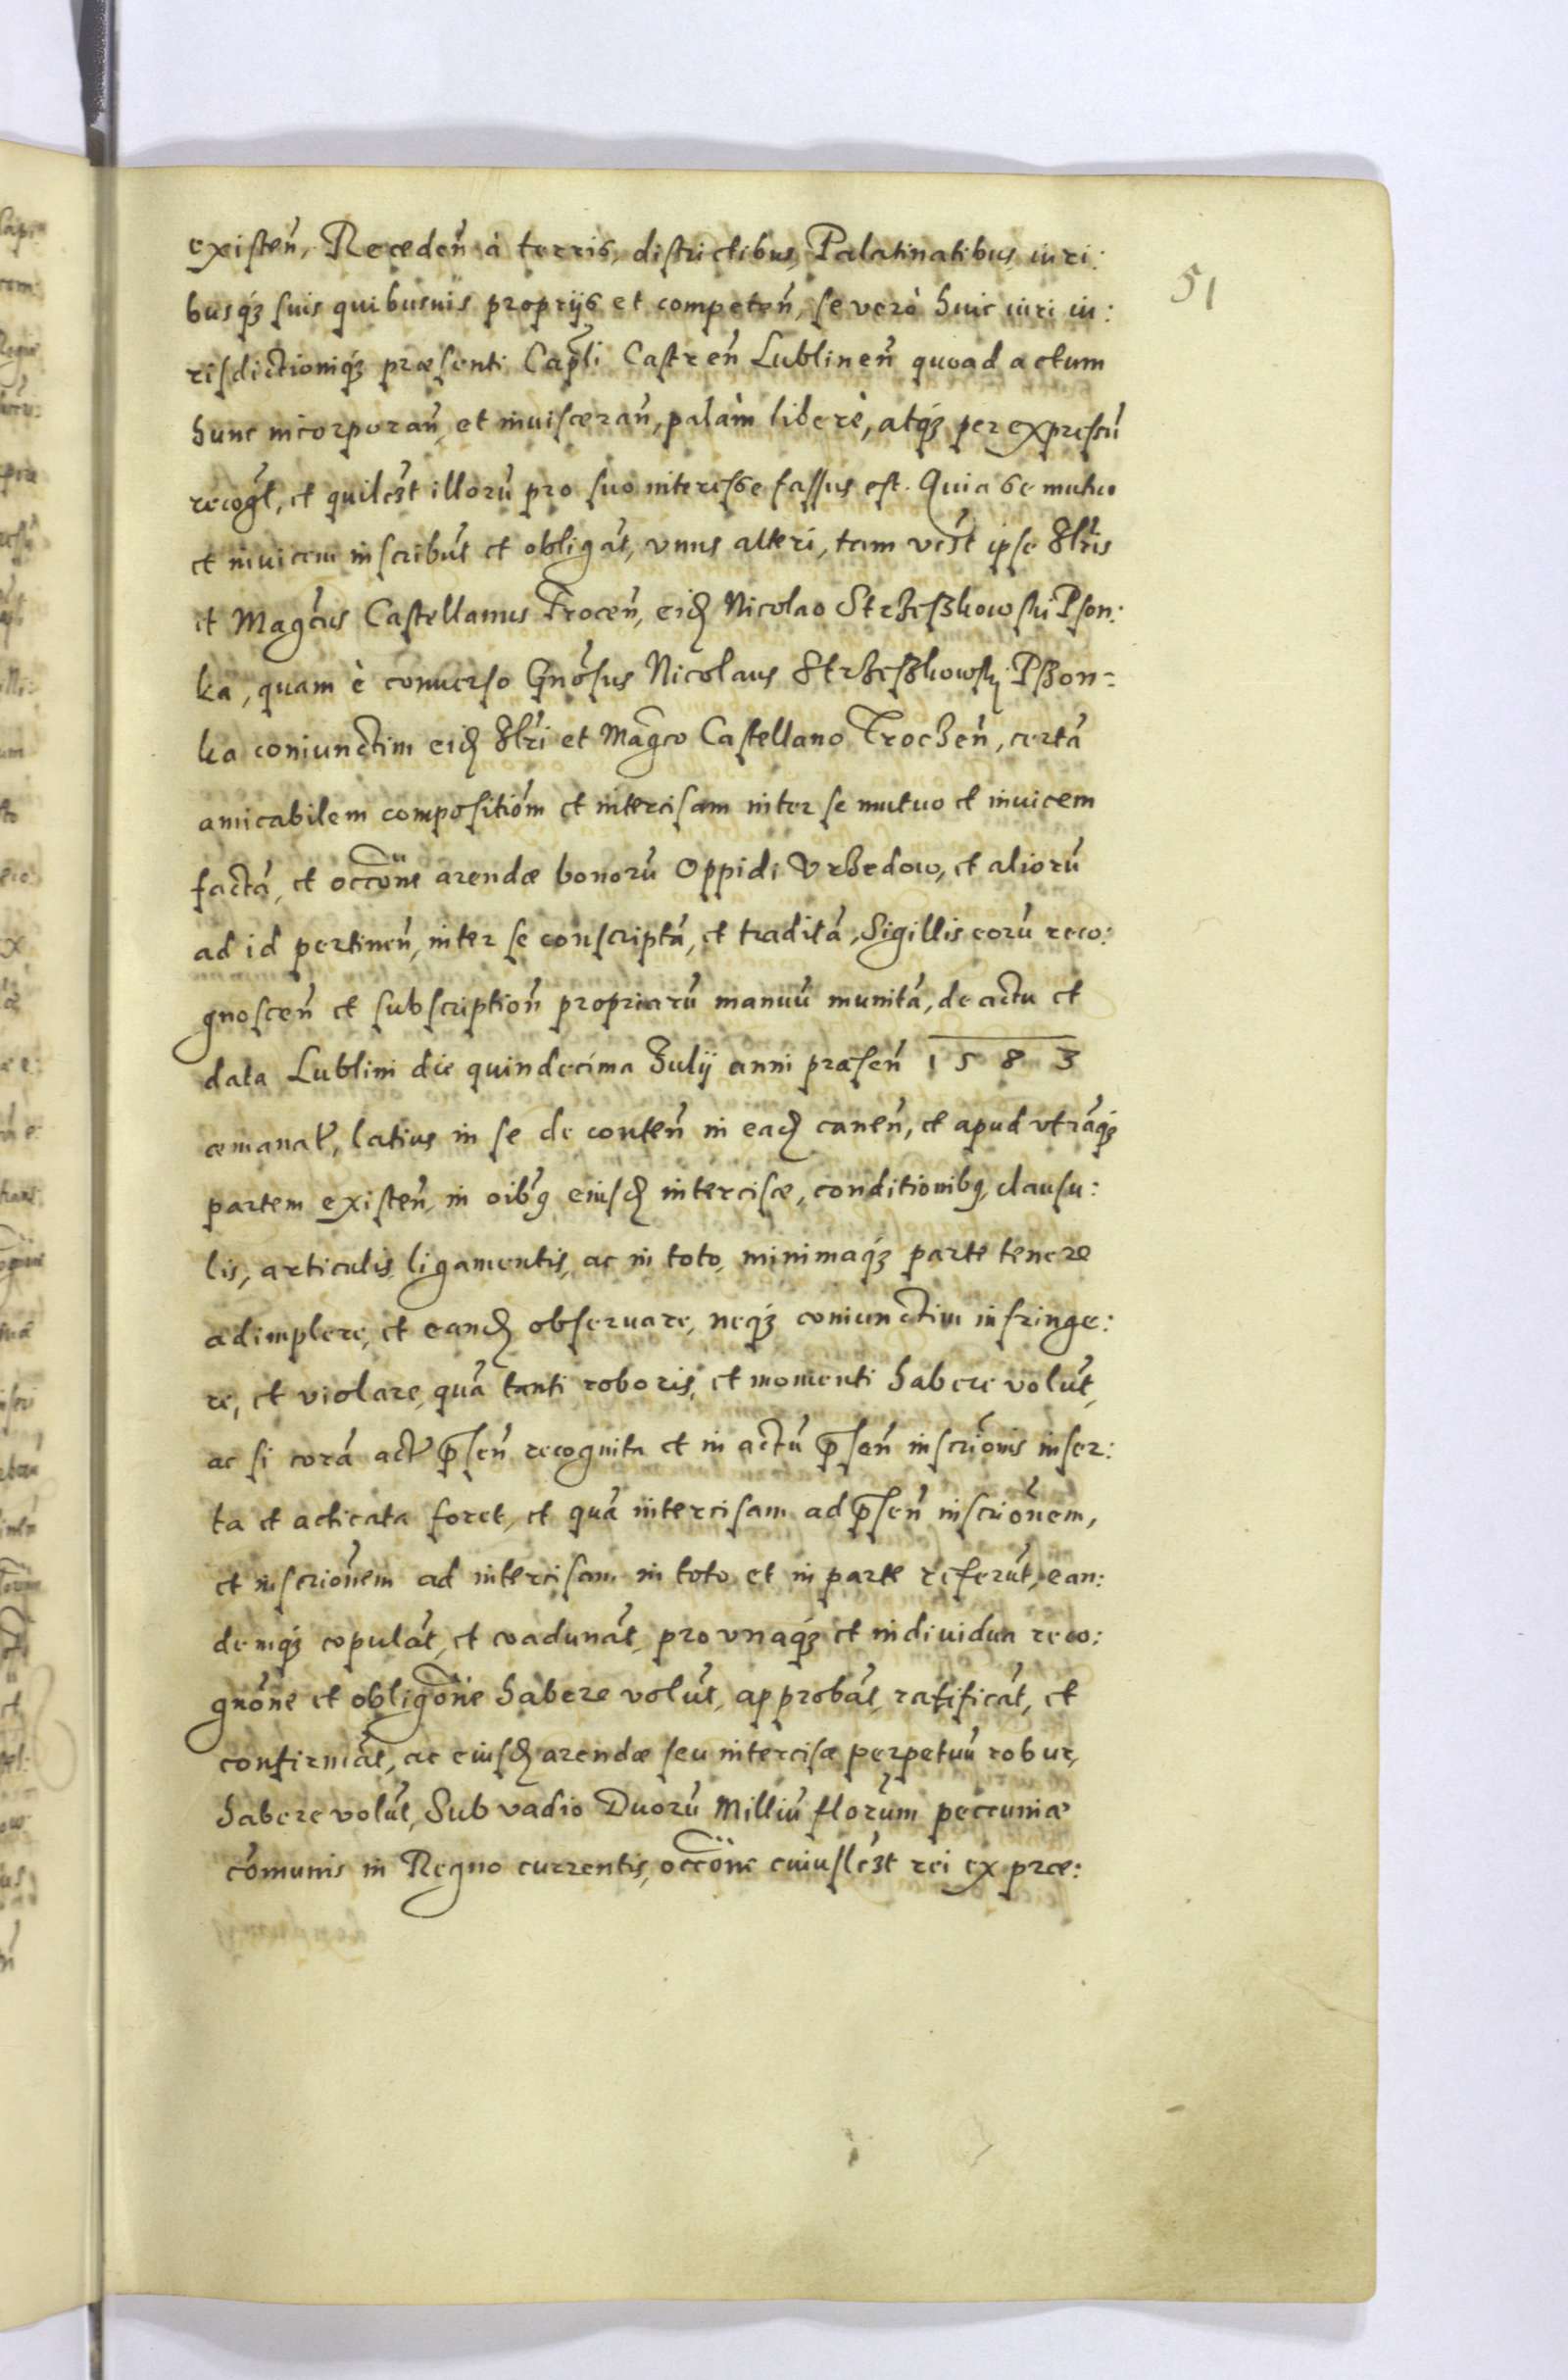 existeñ, Recedeñ à terris, districtibus, Palatinatibus, iuri:
busq́ꝫ suis quibusuis proprijs et competeñ, se verò huic iuri iu:
risdictioniq́ꝫ præsenti Cap̃li Castreñ Lublineñ quoad actum
hunc incorporañ, et inuisceran̄, palàm liberè, atq́ꝫ per expressū
recog̃t, et quilꝫt illorū pro suo interesse fassus est. Quia se mutuo
et inuicem inscribūt et obligāt, vnus alteri, tam vꝫt ipse Illr̃is
et Mag̃cus Castellanus Troceñ, eidꝫ Nicolao Strzeszkowski Pson:
ka, quam è conuerso Gñosus Nicolaus Strzeszkowskj Pszon=
ka coniunctim eidꝫ Illr̃i et Mag̃co Castellano Troczeñ, certā
amicabilem compositiōm et intercisam inter se mutuo et inuicem
factā, et occōne arendæ bonorū Oppidi Vrzedow, et aliorū
ad id pertineñ, inter se conscriptā, et traditā, Sigillis eorū reco:
gnosceñ et subscriptioñ propriarū manuū munitā, de actu et
data Lublini die quindecima Julij anni præseñ 1583
æmanat̃, latius in se de conteñ in eadꝫ caneñ, et apud vtrāq́ꝫ
partem existeñ, in oibꝰ eiusdꝫ intercisæ, conditionibꝰ, clausu:
lis, articulis, ligamentis, ac in toto, minimaq́ꝫ parte tenere
adimplere, et eandꝫ obseruare, neq́ꝫ coniunctim infringe:
re, et violare, quā tanti roboris, et momenti habere volūt,
ac si corā act̃ p̃señ recognita et in actū p̃señ inscriōnis inser:
ta et acticata foret, et quā intercisam ad p̃señ inscriōnem,
et inscriōnem ad intercisam in toto et in parte referūt, ean:
demq́ꝫ copulāt, et coadunāt, pro vnaq́ꝫ et indiuidua reco:
gnōne et obligōne habere volūt, approbāt, ratificāt, et
confirmāt, ac eiusdꝫ arendæ seu intercisæ perpetuū robur,
habere volūt, Sub vadio Duorū Milliū florūm peccuniæ
cōmunis in Regno currentis, occōne cuiuslꝫt rei ex præ:
51